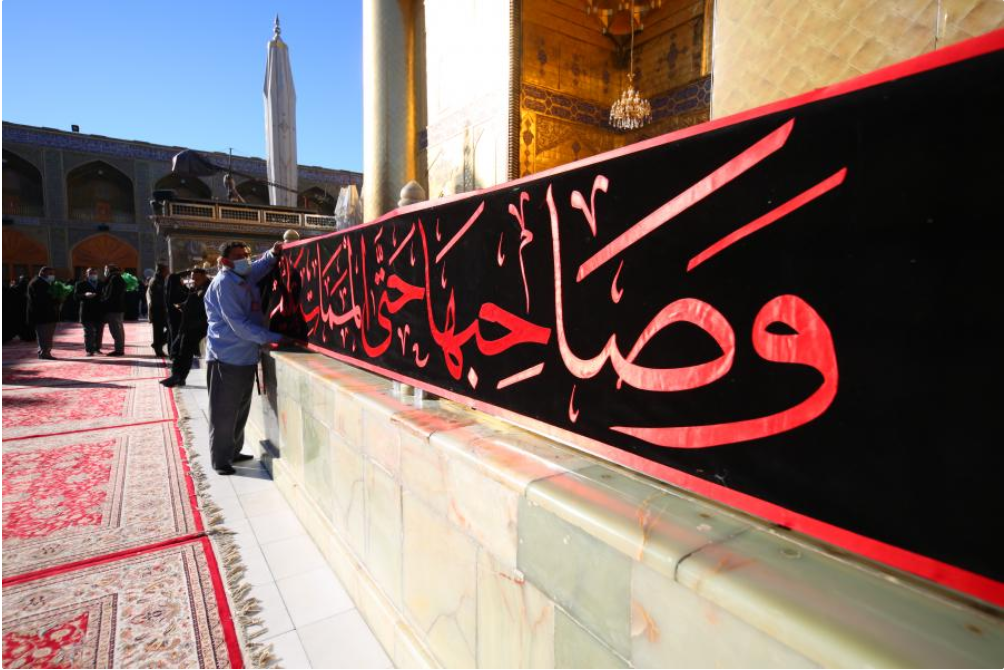 وَصَاحِبِهَا حَتَّى المَمَاتِ